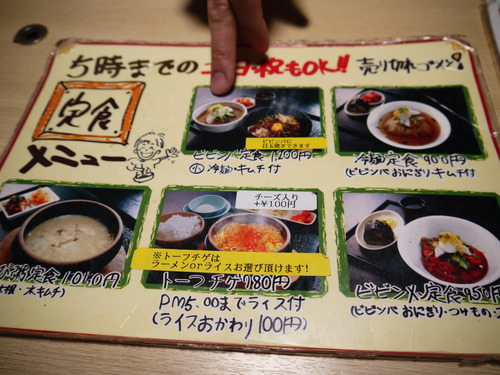 5時までの 土日祝もOK!! 売り切れゴメン!
定食
メニュー
ビビンバに
目玉焼きできます
ビビンバ定食 1,200円
小冷麺・キムチ付
冷麺定食 900円
(ビビンバおにぎり・キムチ付)
チーズ入り
+¥100円
※トーフチゲは
ラーメンorライスお選び頂けます!
定食 1,040円
大根・水キムチ)
トーフチゲ 980円
PM5:00までライス付
(ライスおかわり100円)
ビビンメン定食 950円
(ビビンバおにぎり・つけもの・ス